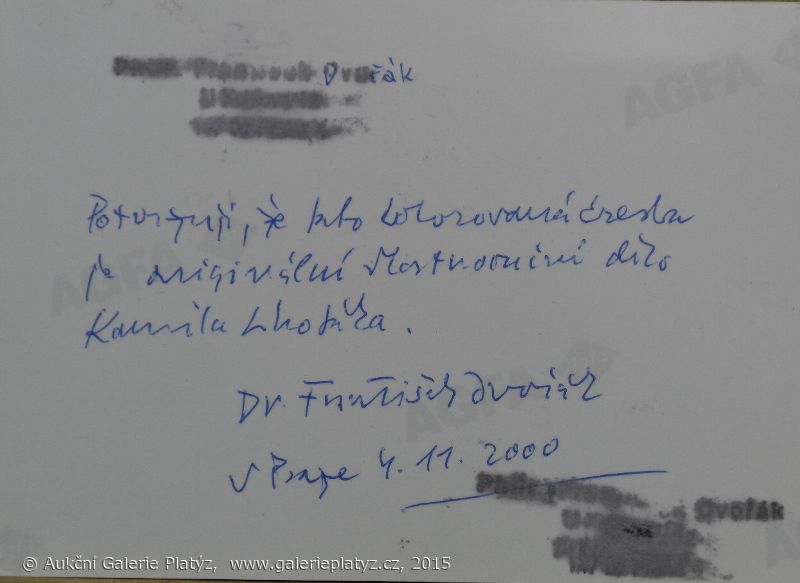 Dvořák
Potvrzuji, že tato kolorovaná kresba
je originální vlastnoruční dílo
Kamila Lhotáka.
Dr. František Dvořák
V Praze 4. 11. 2000
Dvořák
AGFA
AGFA
AGFA
© Aukční Galerie Platýz, www.galerieplatyz.cz, 2015